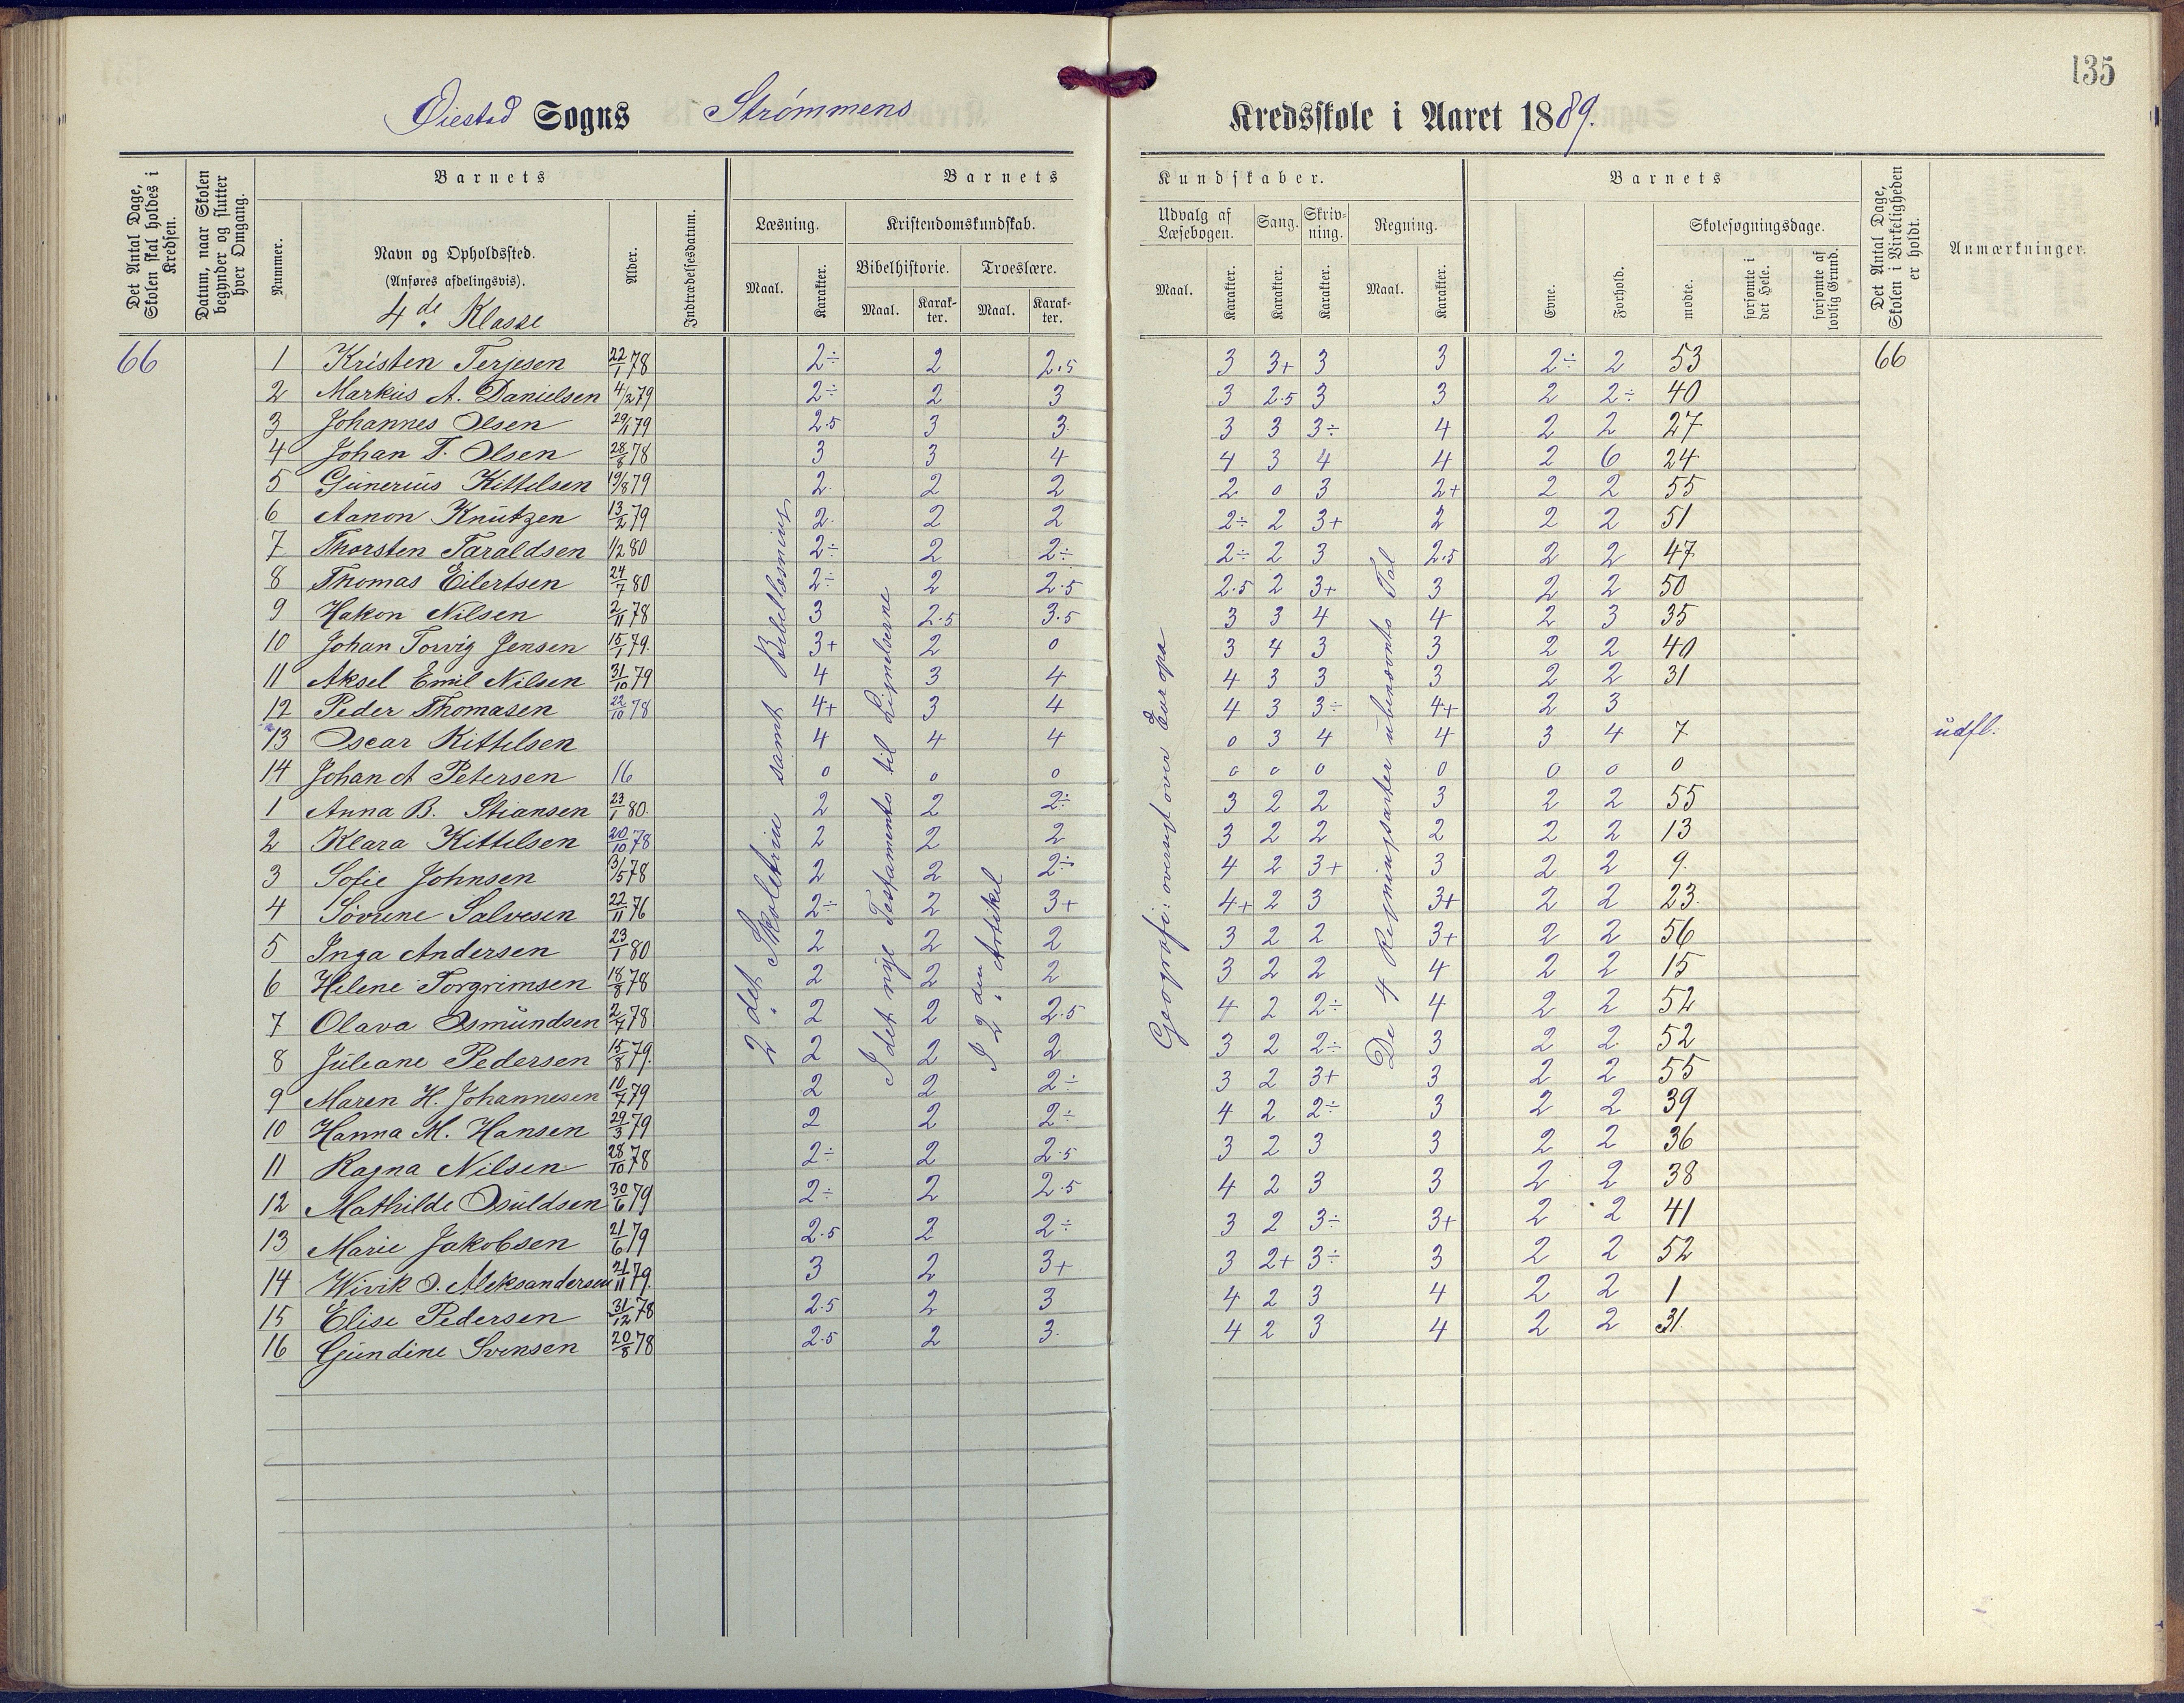 135
Øiestad Sogns Strømmens Kredsskole i Aaret 1889.
Det Antal Dage, Skolen skal holdes i Kredsen.
Datum, naar Skolen begynder og slutter hver Omgang.
Barnets
Nummer.
Navn og Opholdssted.
(Anføres afdelingsvis).
4de Klasse
Alder.
Indtrædelsesdatum.
Barnets Kundskaber.
Læsning.
Maal.
Karakter.
Kristendomskundskab.
Bibelhistorie.
Maal.
Karakter.
Troeslære.
Maal.
Karakter.
Udvalg af Læsebogen.
Maal.
Karakter.
Sang.
Karakter.
Skrivning.
Karakter.
Regning.
Maal.
Karakter.
Barnets
Evne.
Forhold.
Skolesøgningsdage.
mødte.
forsømte i det Hele.
forsømte af lovlig Grund.
Det Antal Dage, Skolen i Virkeligheden er holdt.
Anmærkninger.
66 1 Kristen Terjesen 22/1 78 2÷ 2 2.5 3 3+ 3 3 2÷ 2 53 66
2 Markus A. Danielsen 4/2 79 2÷ 2 3 3 2.5 3 3 2 2÷ 40
3 Johannes Olsen 29/1 79 2.5 3 3. 3 3 3÷ 4 2 2 27
4 Johan T. Olsen 28/8 78 3 3 4 4 3 4 4 2 6 24
5 Gunerius Kittelsen 19/8 79 2. 2 2 2 0 3 2+ 2 2 55
6 Aanon Knutzen 13/2 79 2. 2 2 2÷ 2 3+ 2 2 2 51
7 Thorsten Taraldsen 1/2 80 2÷ 2 2÷ 2÷ 2 3 2.5 2 2 47
8 Thomas Eilertsen 24/7 80 2÷ 2 2.5 2.5 2 3+ 3 2 2 50
9 Hakon Nilsen 2/11 78 3 2.5 3.5 3 3 4 4 2 3 35
10 Johan Torvig Jensen 15/1 79. 3+ 2 0 3 4 3 3 2 2 40
11 Aksel Emil Nilsen 31/10 79 4 3 4 4 3 3 3 2 2 31
12 Peder Thomasen 22/10 78 4+ 3 4 4 3 3÷ 4+ 2 3
13 Oscar Kittelsen 4 4 4 0 3 4 4 3 4 7 udfl.
14 Johan A Petersen 16 0 0 0 0 0 0 0 0 0 0
1 Anna B. Stiansen 23/1 80. 2 2 2÷ 3 2 2 3 2 2 55
2 Klara Kittilsen 20/10 78 2 2 2 3 2 2 2 2 2 13
3 Sofie Johnsen 31/5 78 2 2 2÷ 4 2 3+ 3 2 2 9.
4 Sørine Salvesen 22/11 76 2÷ 2 3+ 4+ 2 3 3+ 2 2 23.
5 Inga Andersen 23/1 80 2 2 2 3 2 2 3+ 2 2 56
6 Helene Torgrimsen 18/8 78 2 2 2 3 2 2 4 2 2 15
7 Olava Osmundsen 2/7 78 2 2 2.5 4 2 2÷ 4 2 2 52
8 Juleane Pedersen 15/8 79. 2 2 2 3 2 2÷ 3 2 2 52
9 Maren H. Johannesen 10/7 79 2 2 2÷ 3 2 3+ 3 2 2 55
10 Hanna M. Hansen 29/3 79 2 2 2÷ 4 2 2÷ 3 2 2 39
11 Ragna Nilsen 28/10 78 2÷ 2 2.5 3 2 3 3 2 2 36
12 Mathilde Osuldsen 30/6 79 2÷ 2 2.5 4 2 3 3 2 2 38
13 Marie Jakobsen 21/6 79 2.5 2 2÷ 3 2 3÷ 3+ 2 2 41
14 Wivik O. Aleksandersen 21/11 79. 3 2 3+ 3 2+ 3÷ 3 2 2 52
15 Elise Pedersen 31/12 78 2.5 2 3 4 2 3 4 2 2 1
16 Gundine Svensen 20/8 78 2.5 2 3. 4 2 3 4 2 2 31.
2det Skoletrin samt Bibellæsning
I det nye Testamente til Lignelserne
I 2den Artikel
Geografi: oversigt over Europa
De 4 Regningsarter ubenævnte Tal